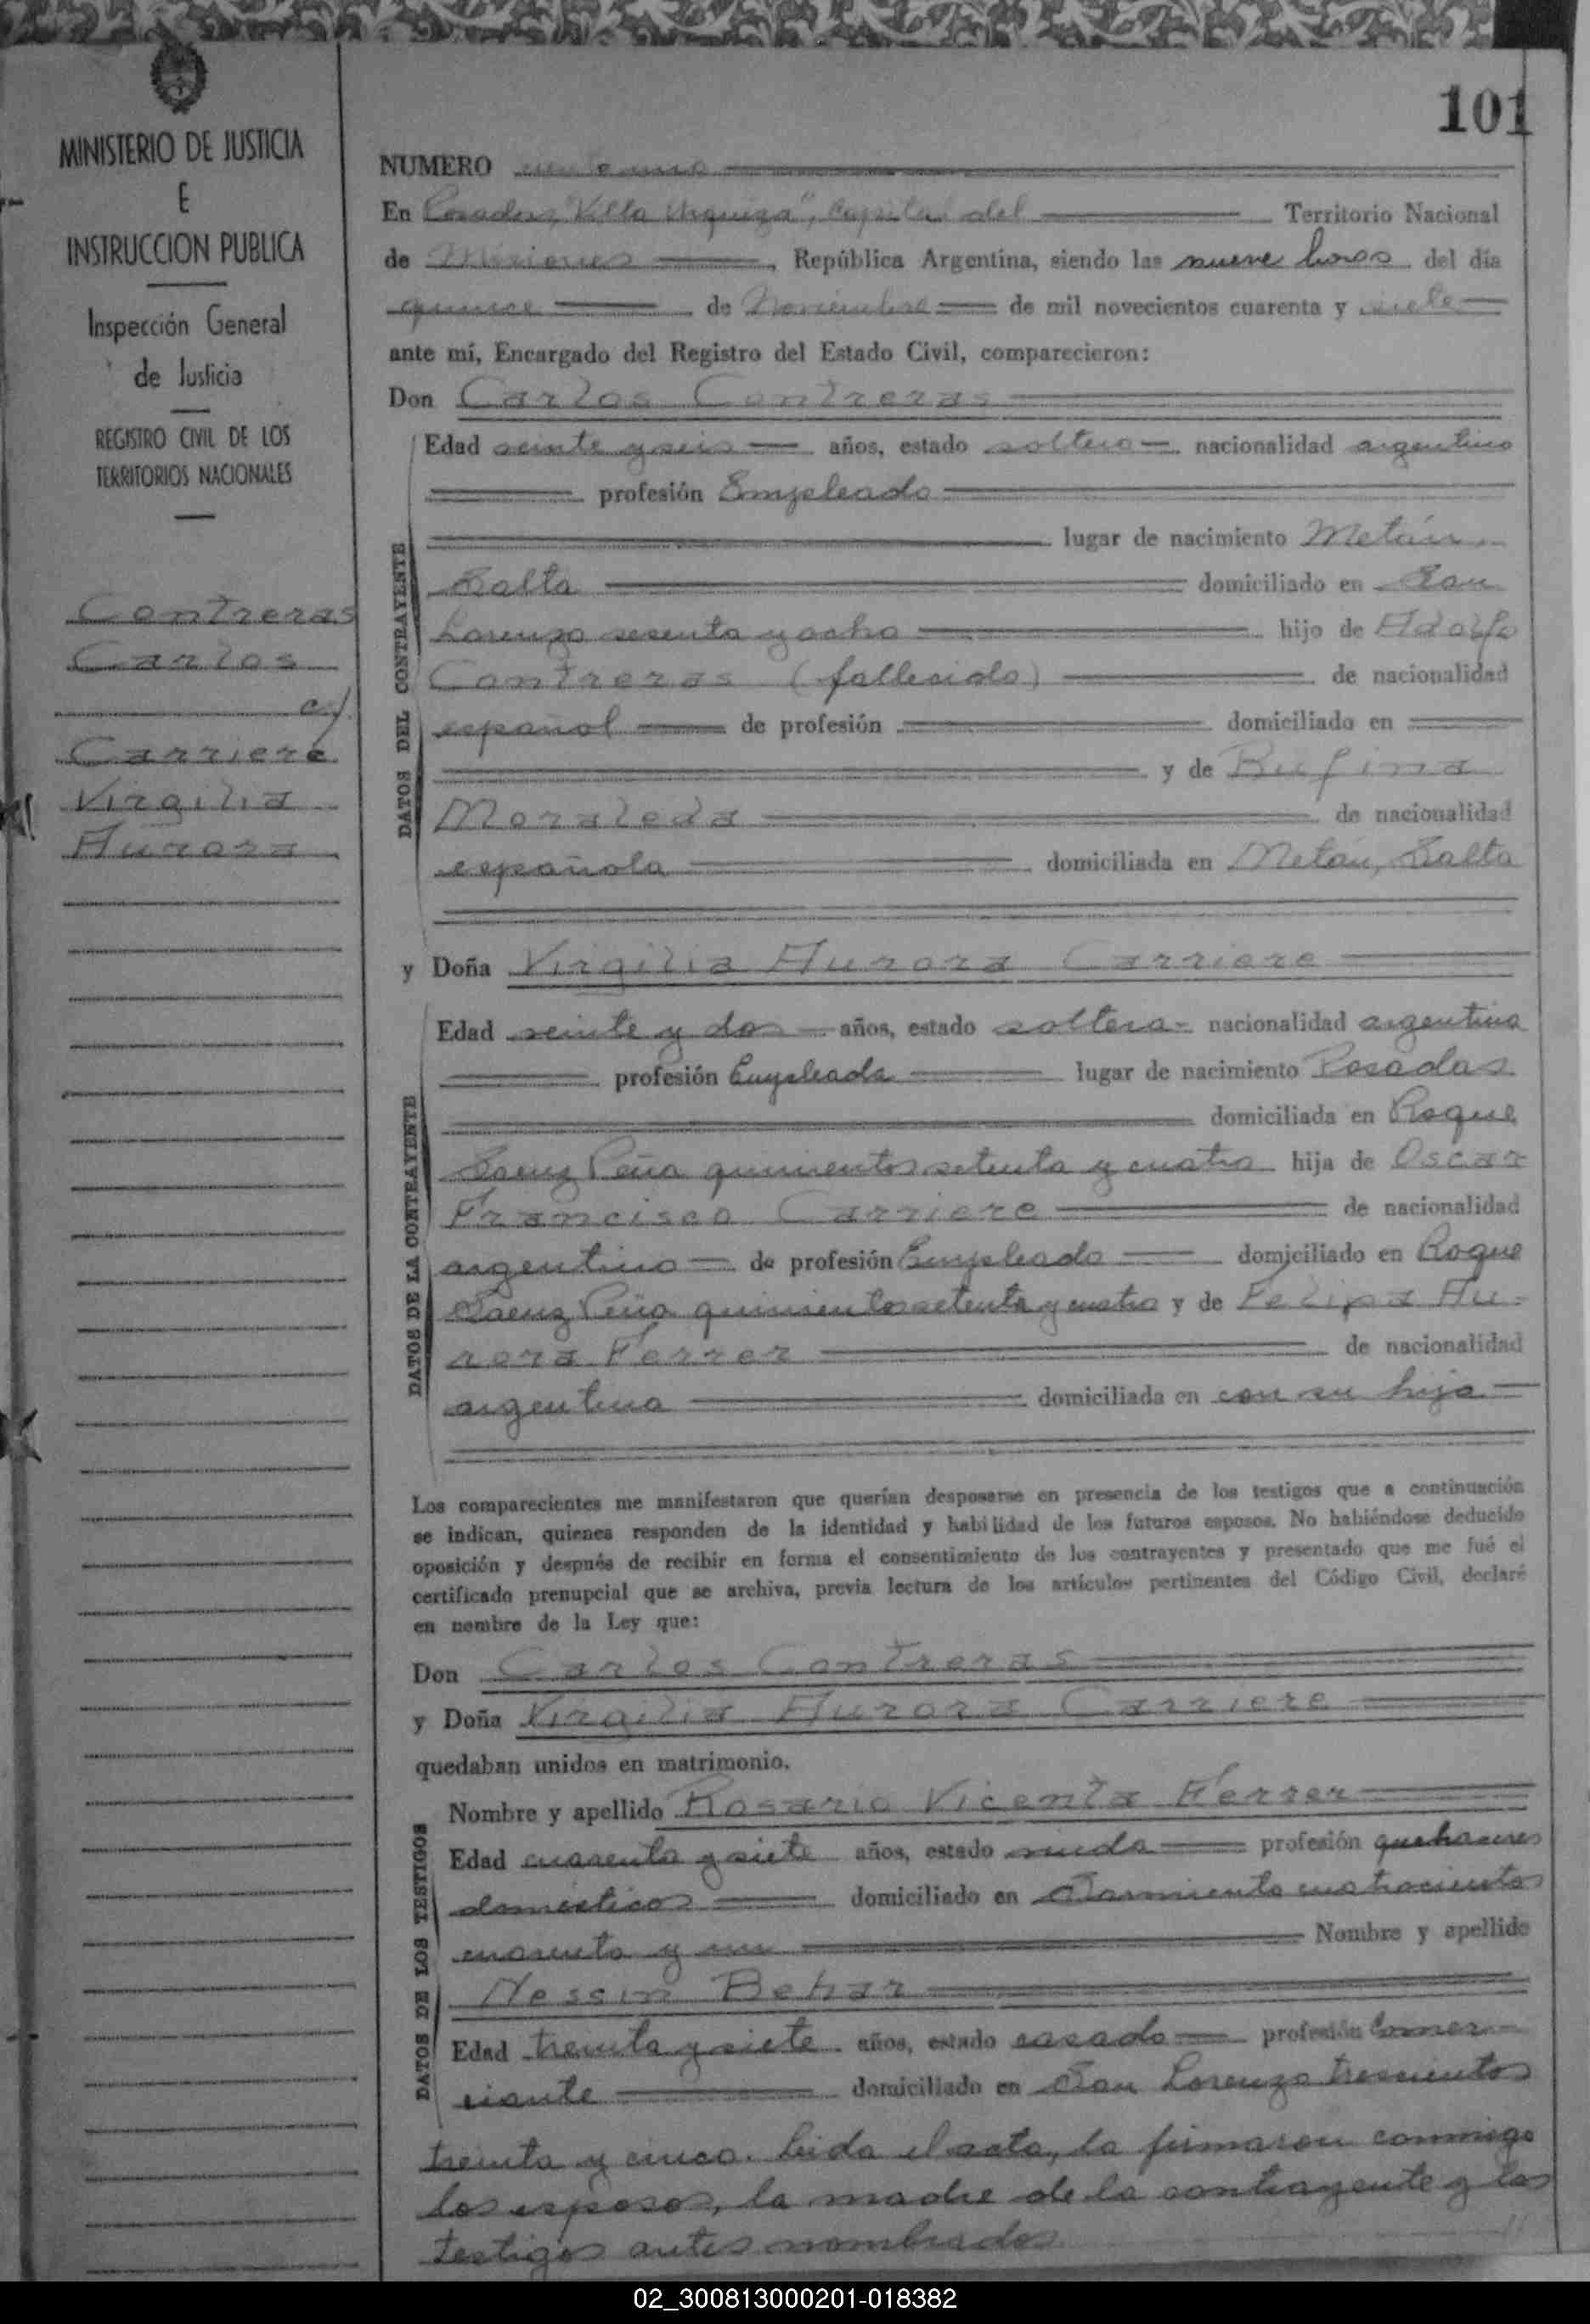 101
MINISTERIO DE JUSTICIA
E
INSTRUCCION PUBLICA
Inspección General
de Justicia
REGISTRO CIVIL DE LOS
TERRITORIOS NACIONALES
Contreras
Carlos
c/.
Carriere
Virgilia
Aurora
NUMERO ciento uno
En Posadas, "Villa Urquiza", Capital del Territorio Nacional
de Misiones, República Argentina, siendo las nueve horas del día
quince de Noviembre de mil novecientos cuarenta y siete
ante mí, Encargado del Registro del Estado Civil, comparecieron:
Don Carlos Contreras
DATOS DEL CONTRAYENTE
Edad veinte y seis años, estado soltero nacionalidad argentino
profesión Empleado
lugar de nacimiento Metán,
Salta domiciliado en San
Lorenzo sesenta y ocho hijo de Adolfo
Contreras (fallecido) de nacionalidad
español de profesión domiciliado en
y de Rufina
Moraleda de nacionalidad
española domiciliada en Metán, Salta
y Doña Virgilia Aurora Carriere
DATOS DE LA CONTRAYENTE
Edad veinte y dos años, estado soltera nacionalidad argentina
profesión Empleada lugar de nacimiento Posadas
domiciliada en Roque
Saenz Peña quinientos setenta y cuatro hija de Oscar
Francisco Carriere de nacionalidad
argentino de profesión Empleado domiciliado en Roque
Saenz Peña quinientos setenta y cuatro y de Felipa Au-
rora Ferrer de nacionalidad
argentina domiciliada en con su hija
Los comparecientes me manifestaron que querían desposarse en presencia de los testigos que a continuación
se indican, quienes responden de la identidad y habilidad de los futuros esposos. No habiéndose deducido
oposición y después de recibir en forma el consentimiento de los contrayentes y presentado que me fué el
certificado prenupcial que se archiva, previa lectura de los artículos pertinentes del Código Civil, declaré
en nombre de la Ley que:
Don Carlos Contreras
y Doña Virgilia Aurora Carriere
quedaban unidos en matrimonio.
DATOS DE LOS TESTIGOS
Nombre y apellido Rosario Vicenta Ferrer
Edad cuarenta y siete años, estado viuda profesión quehaceres
domésticos domiciliado en Sarmiento cuatrocientos
cuarenta y un Nombre y apellido
Nessin Behar
Edad treinta y siete años, estado casado profesión Comer-
ciante domiciliado en San Lorenzo trescientos
treinta y cinco. Leida el acta, la firmaron conmigo
los esposos, la madre de la contrayente y los
testigos antes nombrados.
02_300813000201-018382